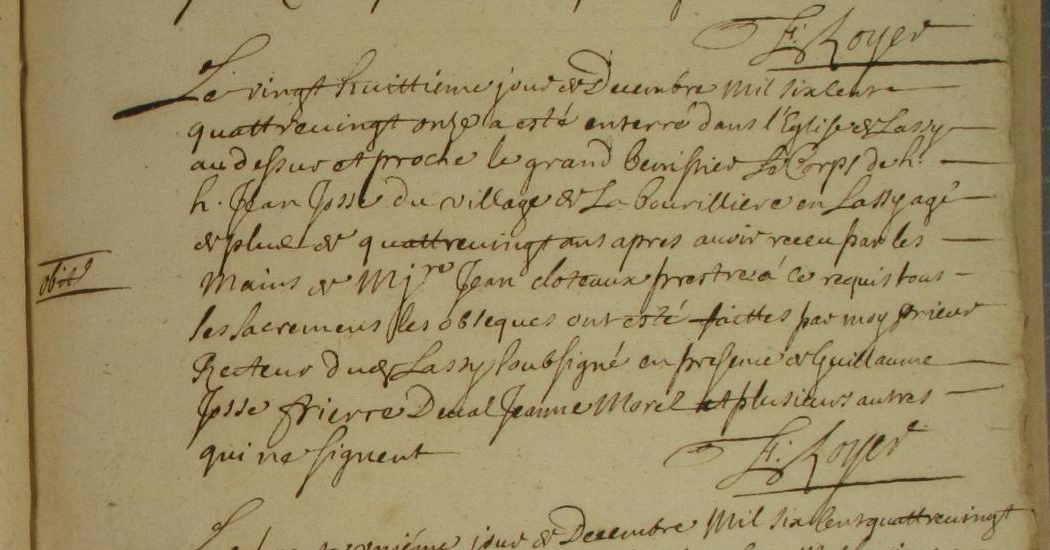 F: Royer
Le vingt huittieme jour de Decembre mil six cent
quattrevingt onze a esté enterré dans l'Eglise de Lassy
au dessus et proche le grand benissier Le Corps de h.
h. Jean Josse du village de La bourilliere en Lassy agé
de plus de quattrevingt ans apres avoir receu par les
Mains de Mire Jean cloteaux prestre a ce requis tous
les sacremens les obseques ont esté faittes par moy prieur
Recteur du d Lassy soubsigné en presence de Guillaume
obit
Josse Pierre Deval Jeanne Morel et plusieurs autres
qui ne signent
F: Royer
jour de Decembre Mil six cent quattrevingt